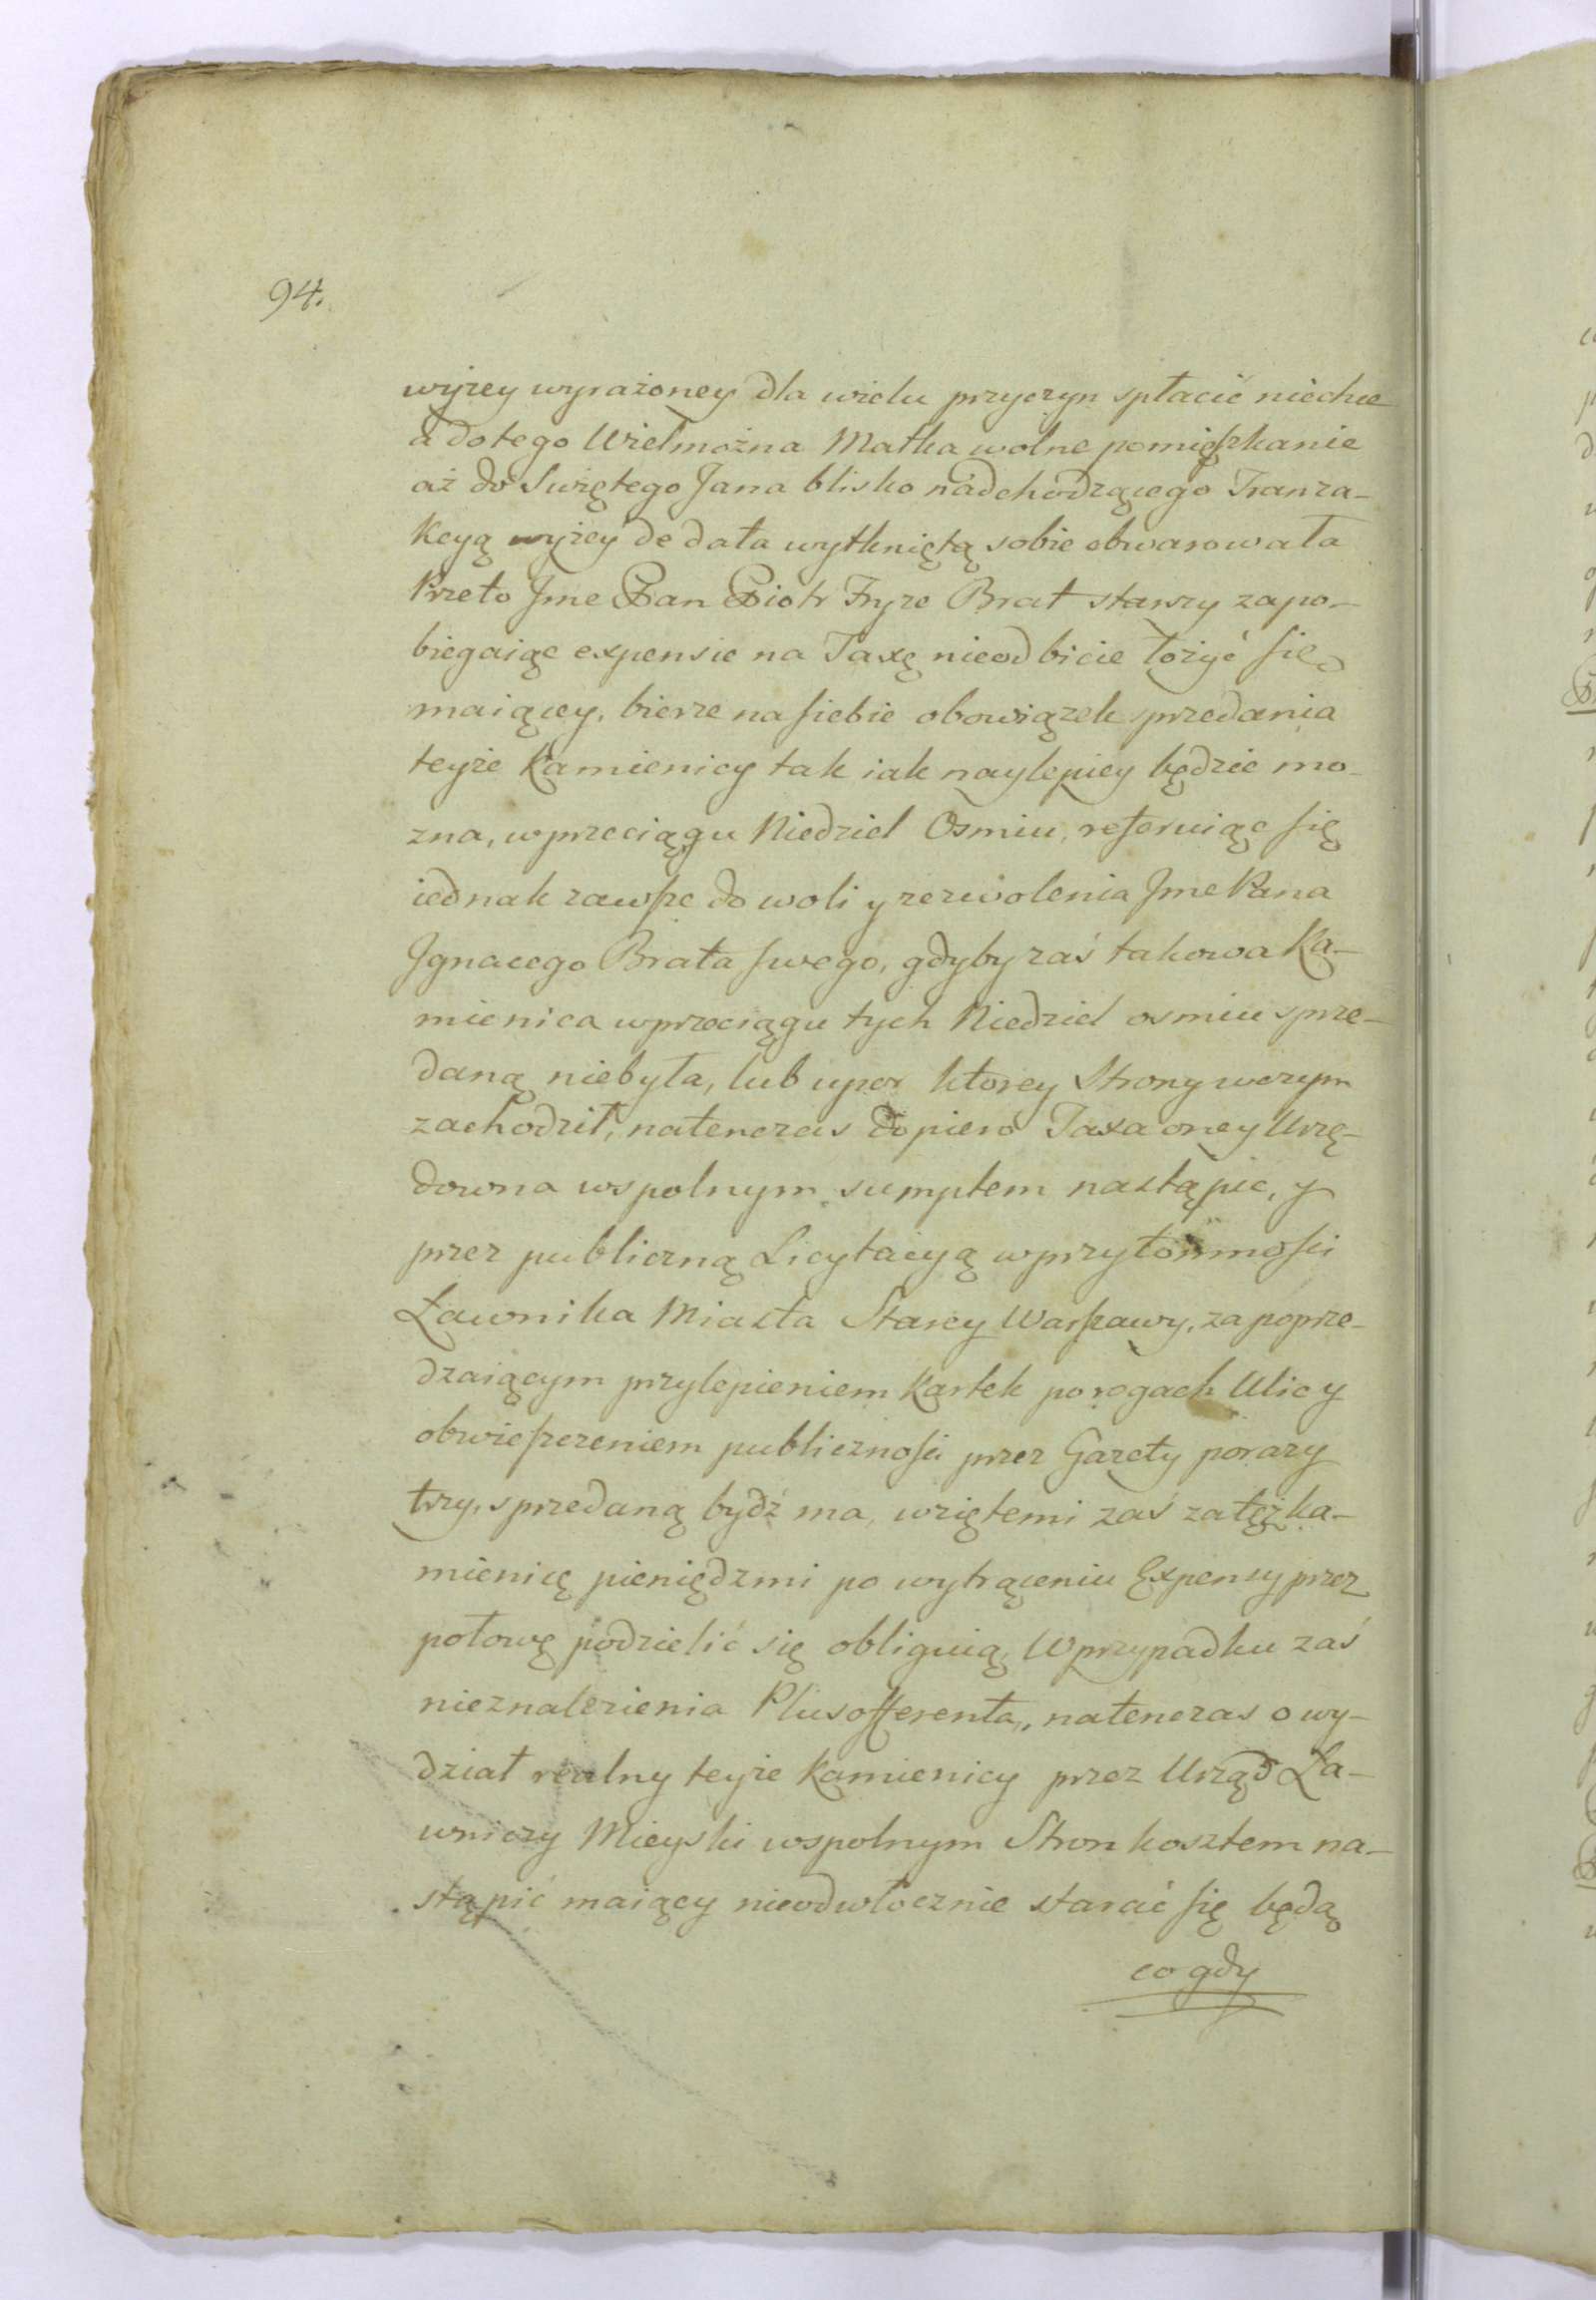 94.
wyżey wyrażoney dla wielu przyczyn spłacić niechce
a dotego Wielmożna Matka wolne pomięszkanie
aż do Swiętego Jana blisko nadchodzącego Tranza-
kcyą wyżey de data wytkniętą sobie obwarowała
Przeto Jmc Pan Piotr Fryze Brat starszy zapo-
biegaiąc expensie na Taxę nieodbicie łożyć się
maiącey, bierze na siebie obowiązek przedania
teyże Kamienicy tak iak naylepiey będzie mo-
zna, w przeciągu Niedziel Osmiu, referuiąc się
iednak zawsze do woli y zezwolenia Jmc Pana
Jgnacego Brata swego, gdyby zaś takowa Ka-
mienica w przeciągu tych Niedziel osmiu sprze-
daną niebyła, lub upor ktorey Strony w czym
zachodził, natenczas dopiero Taxa oney Urzę-
downa wspolnym sumptem nastąpić, y
przez publiczną Licytacyą w przytomności
Ławnika Miasta Starey Warszawy, za poprze-
dzaiącym przylepieniem Kartek po rogach Ulic y
obwieszczeniem publiczności przez Gazety porazy
trzy, sprzedaną bydź ma, wziętemi zaś za tęż ka-
mienicę pieniędzmi po wytrąceniu Expensy przez
połowę podzielić się obliguią, W przypadku zaś
nieznalezienia Plusofferenta, natenczas o wy-
dział realny teyże Kamienicy przez Urząd Ła-
wniczy Mieyski wspolnym Stron kosztem na-
stąpić maiący nieodwłocznie starać się będą
co gdy